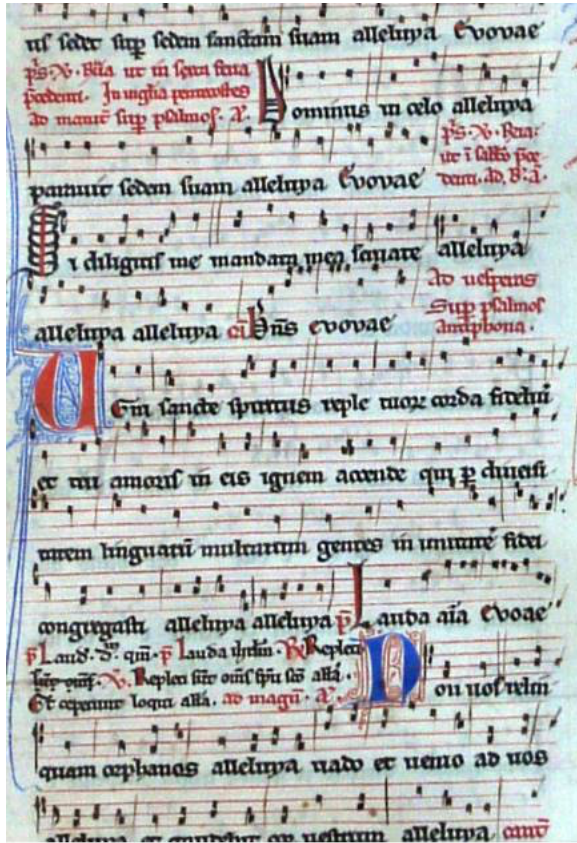 us sedet sup sedem sanctam suam alleluya Evovae
ps. V. Rria ut in sexta feria
pcedenti. In vigilia pentecostes
ad matut sup psalmos. A.
Dominus in celo alleluya
paravit sedem suam alleluya Evovae
ps. V. Rria:
ut i sabbo pce
denti. ad. B: a.
Si diligitis me mandata mea servate alleluya
alleluya alleluya Bñs evovae
Ad vesperas
Sup psalmos
antiphona.
Veni sancte spiritus reple tuorꝝ corda fideliũ
et tui amoris in eis ignem accende qui ꝑ diversi
tatem linguarũ multarum gentes in unitate fidei
congregasti alleluya alleluya p̃ Lauda aĩa Evovae
p̃ Laud. d. qm̃. p̃ Lauda ihrlm. R Repleti
V. Repleti sunt om̃s spũ sco alla.
Et ceperunt loqui alla. ad magñ. A.
Non vos relin
quam orphanos alleluya vado et venio ad vos
alleluya et gaudebit cor vestrum alleluya. cant̃